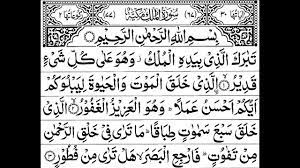 سُورَةُ الْمُلْكِ مَكِّيَّةٌ
بِسْمِ اللّٰهِ الرَّحْمٰنِ الرَّحِيْمِ
تَبٰرَكَ الَّذِيْ بِيَدِهِ الْمُلْكُ ۡ وَهُوَ عَلٰى كُلِّ شَيْءٍ
قَدِيْرُ ۨ ۝١ الَّذِيْ خَلَقَ الْمَوْتَ وَالْحَيٰوةَ لِيَبْلُوَكُمْ
اَيُّكُمْ اَحْسَنُ عَمَلًا ؕ وَهُوَ الْعَزِيْزُ الْغَفُوْرُ ۝٢ الَّذِيْ
خَلَقَ سَبْعَ سَمٰوٰتٍ طِبَاقًا ؕ مَا تَرٰى فِيْ خَلْقِ الرَّحْمٰنِ
مِنْ تَفٰوُتٍ ؕ فَارْجِعِ الْبَصَرَ ۙ هَلْ تَرٰى مِنْ فُطُوْرٍ ۝٣